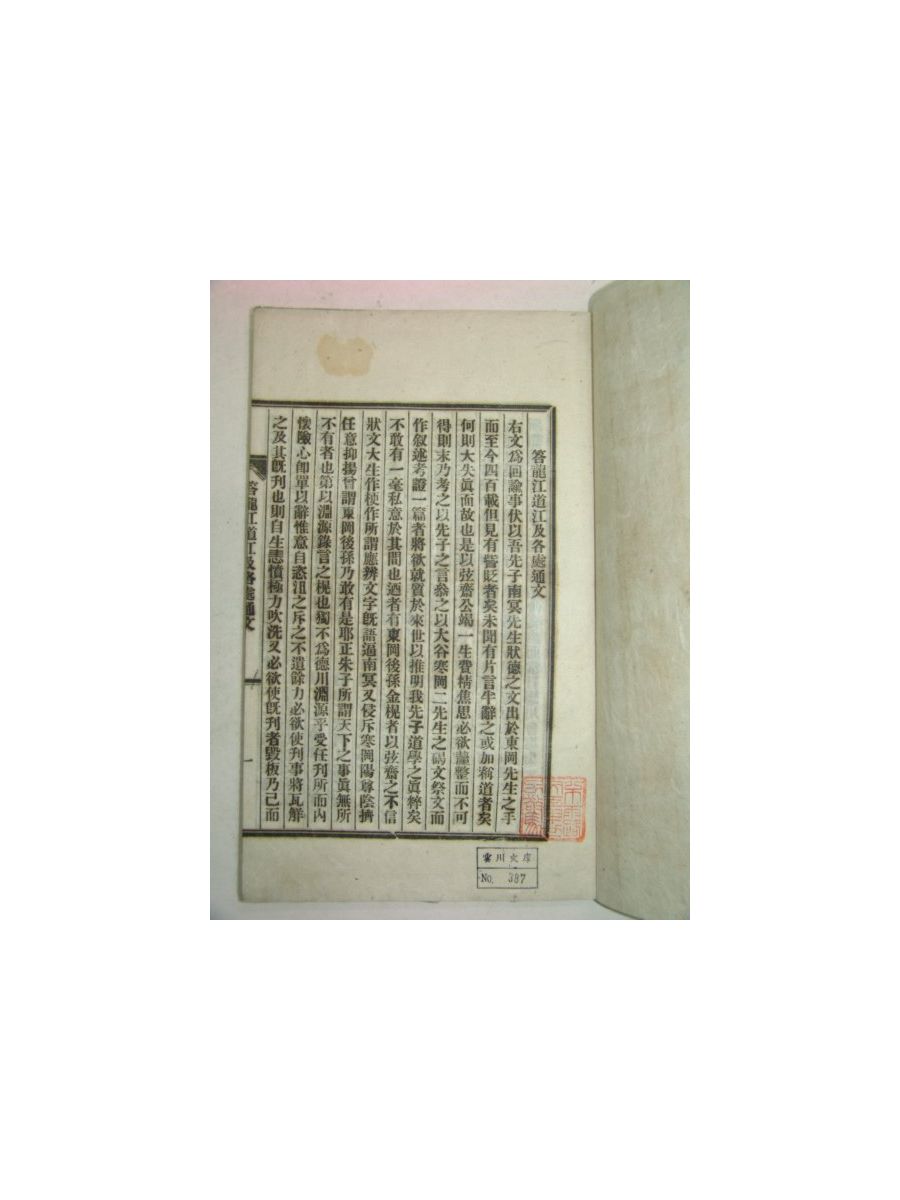 答龍江道江及各處通文
右文爲回諭事伏以吾先子南冥先生狀德之文出於東岡先生之手
而至今四百載但見有訾貶者矣未聞有片言半辭之或加稱道者矣
何則大失眞面故也是以弦齋公竭一生費精焦思必欲釐整而不可
得則末乃考之以先子之言叅之以大谷寒岡二先生之碣文祭文而
作叙述考證一篇者將欲就質於來世以推明我先子道學之眞粹矣
不敢有一毫私意於其間也迺者有東岡後孫金榥者以弦齋之不信
狀文大生作梗作所謂應辨文字旣語逼南冥又侵斥寒岡陽尊陰擠
任意抑揚曾謂東岡後孫乃敢有是耶正朱子所謂天下之事眞無所
不有者也第以淵源錄言之榥也獨不爲德川淵源乎受任刊所而內
懷險心卽單以辭惟意自恣沮之斥之不遺餘力必欲使刊事將瓦觧
之及其旣刊也則自生恚憤極力吹洗又必欲使旣刊者毀板乃已而
答龍江道江及各處通文
一
雲川文庫
No. 387